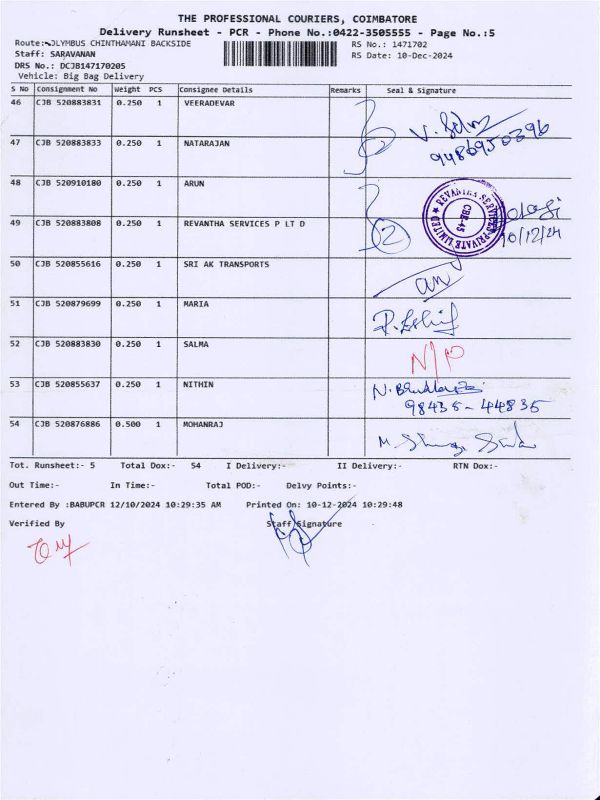 THE PROFESSIONAL COURIERS, COIMBATORE
Delivery Runsheet - PCR - Phone No.:0422-3505555 - Page No.:5
Route: OLYMBUS CHINTHAMANI BACKSIDE
RS No.: 1471702
Staff: SARAVANAN
RS Date: 10-Dec-2024
DRS No.: DCJB147170205
Vehicle: Big Bag Delivery
S No Consignment No Weight PCS Consignee Details Remarks Seal & Signature
46 CJB 520883831 0.250 1 VEERADEVAR
47 CJB 520883833 0.250 1 NATARAJAN
48 CJB 520910180 0.250 1 ARUN
49 CJB 520883808 0.250 1 REVANTHA SERVICES P LT D 2 10/12/24
REVANTHA SERVICES PRIVATE LIMITED
CBE-45
50 CJB 520855616 0.250 1 SRI AK TRANSPORTS
51 CJB 520879699 0.250 1 MARIA
52 CJB 520883830 0.250 1 SALMA
53 CJB 520855637 0.250 1 NITHIN
98435-44835
54 CJB 520876886 0.500 1 MOHANRAJ
Tot. Runsheet:- 5 Total Dox:- 54 I Delivery:- II Delivery:- RTN Dox:-
Out Time:- In Time:- Total POD:- Delvy Points:-
Entered By :BABUPCR 12/10/2024 10:29:35 AM Printed On: 10-12-2024 10:29:48
Verified By Staff Signature